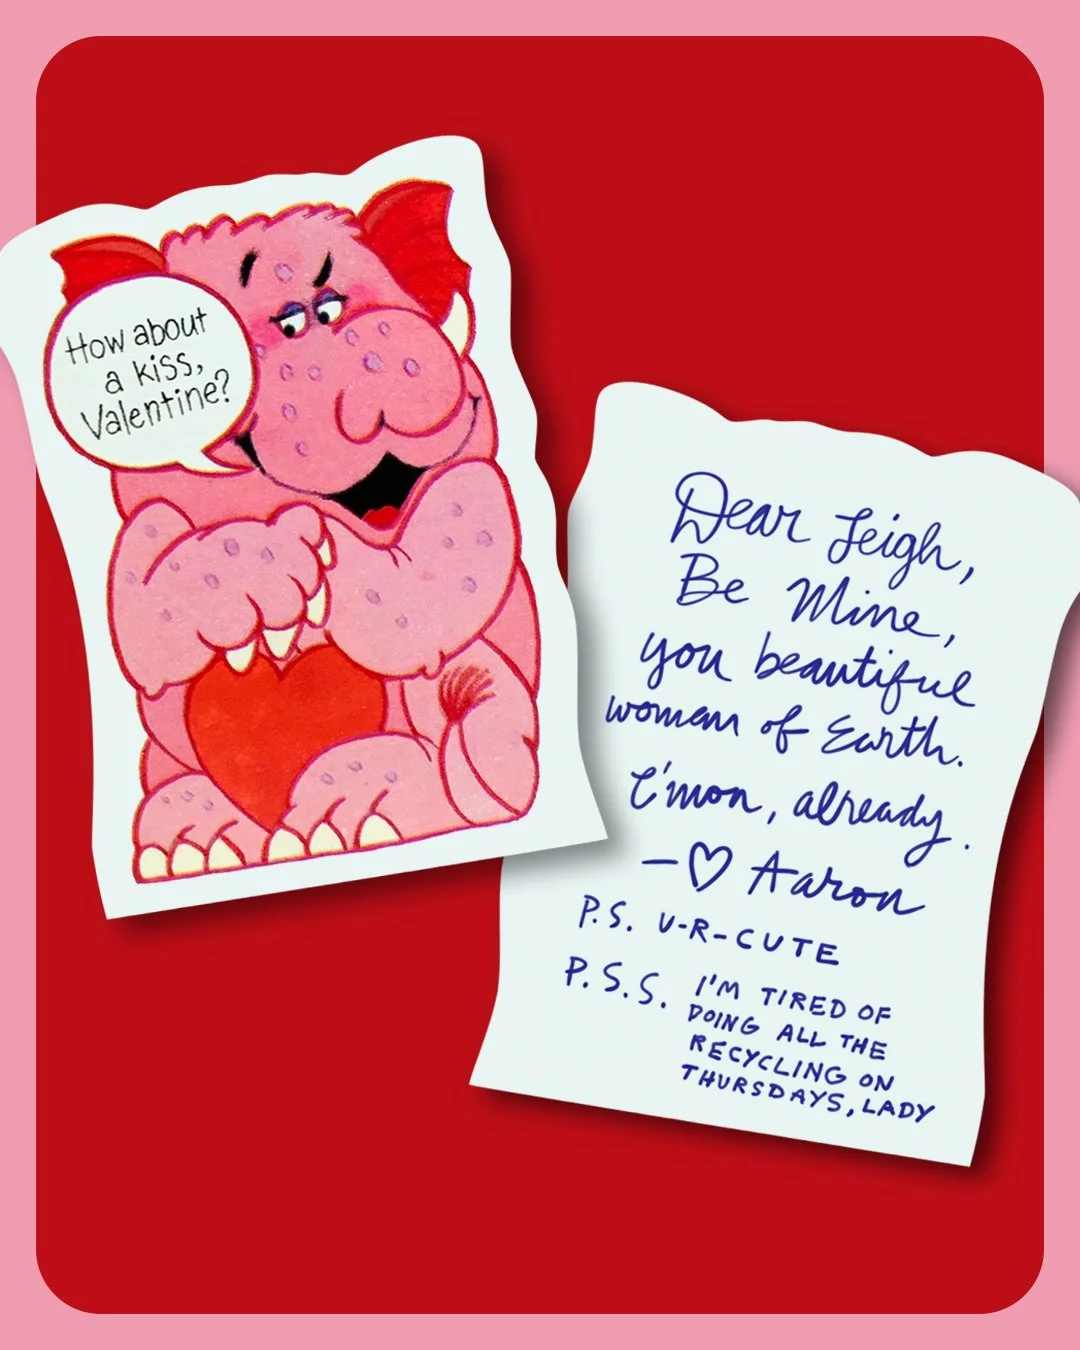 How about
a kiss,
Valentine?
Dear Leigh,
Be Mine,
you beautiful
woman of Earth.
C'mon, already.
—♡ Aaron
P.S. U-R-CUTE
P.S.S. I'M TIRED OF
DOING ALL THE
RECYCLING ON
THURSDAYS, LADY